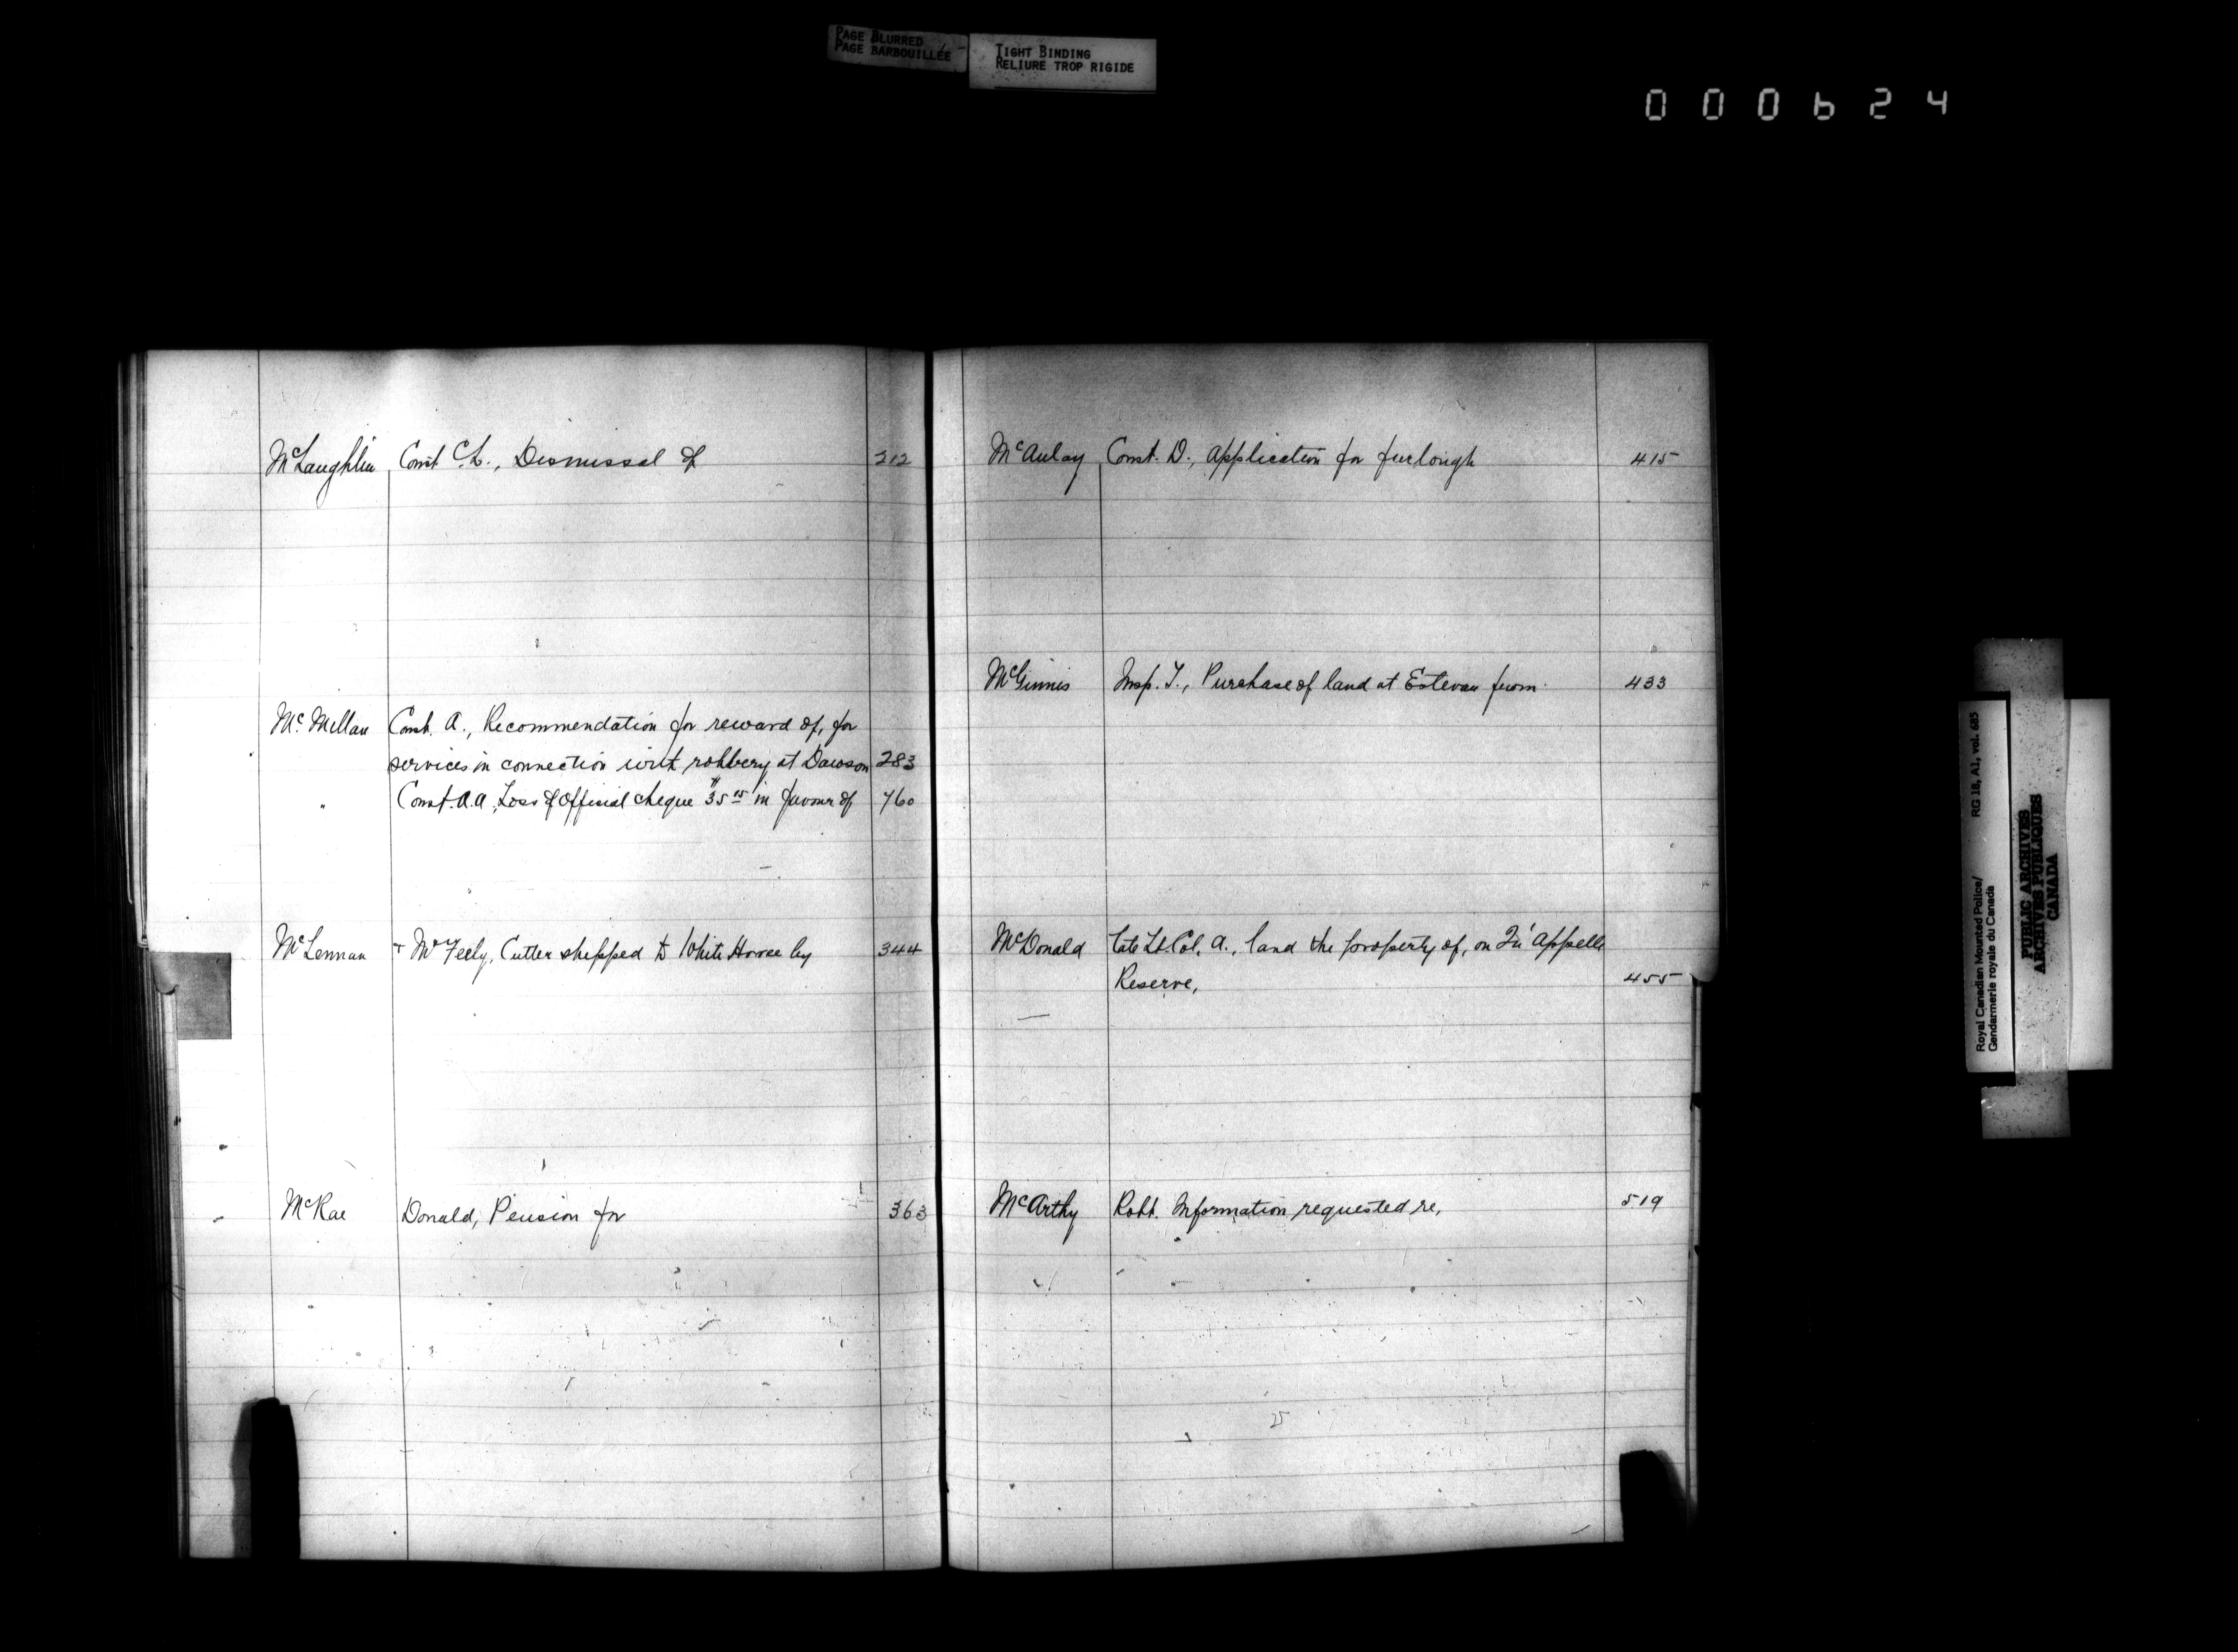 PAGE BLURRED
PAGE BARBOUILLÉE
TIGHT BINDING
RELIURE TROP RIGIDE
000624
McLaughlin Const. C.L., Dismissal of 212
Mc. Millan Const. A., Recommendation for reward of, for
services in connection with robbery at Dawson 283
" Const. A.A, Loss of Official cheque $35 in favour of 760
McLennan + McFeely, Cutter shipped to White Horse by 344
McRae Donald, Pension for 363
McAulay Const. D., Application for furlough 415
McGinnis Insp. T., Purchase of land at Estevan from 433
McDonald late Lt. Col. A., land the property of, on Qu'Appelle
Reserve, 455
McArthy Robt. Information requested re, 519
Royal Canadian Mounted Police/ RG 18, A1, vol. 685
Gendarmerie royale du Canada
PUBLIC ARCHIVES
ARCHIVES PUBLIQUES
CANADA